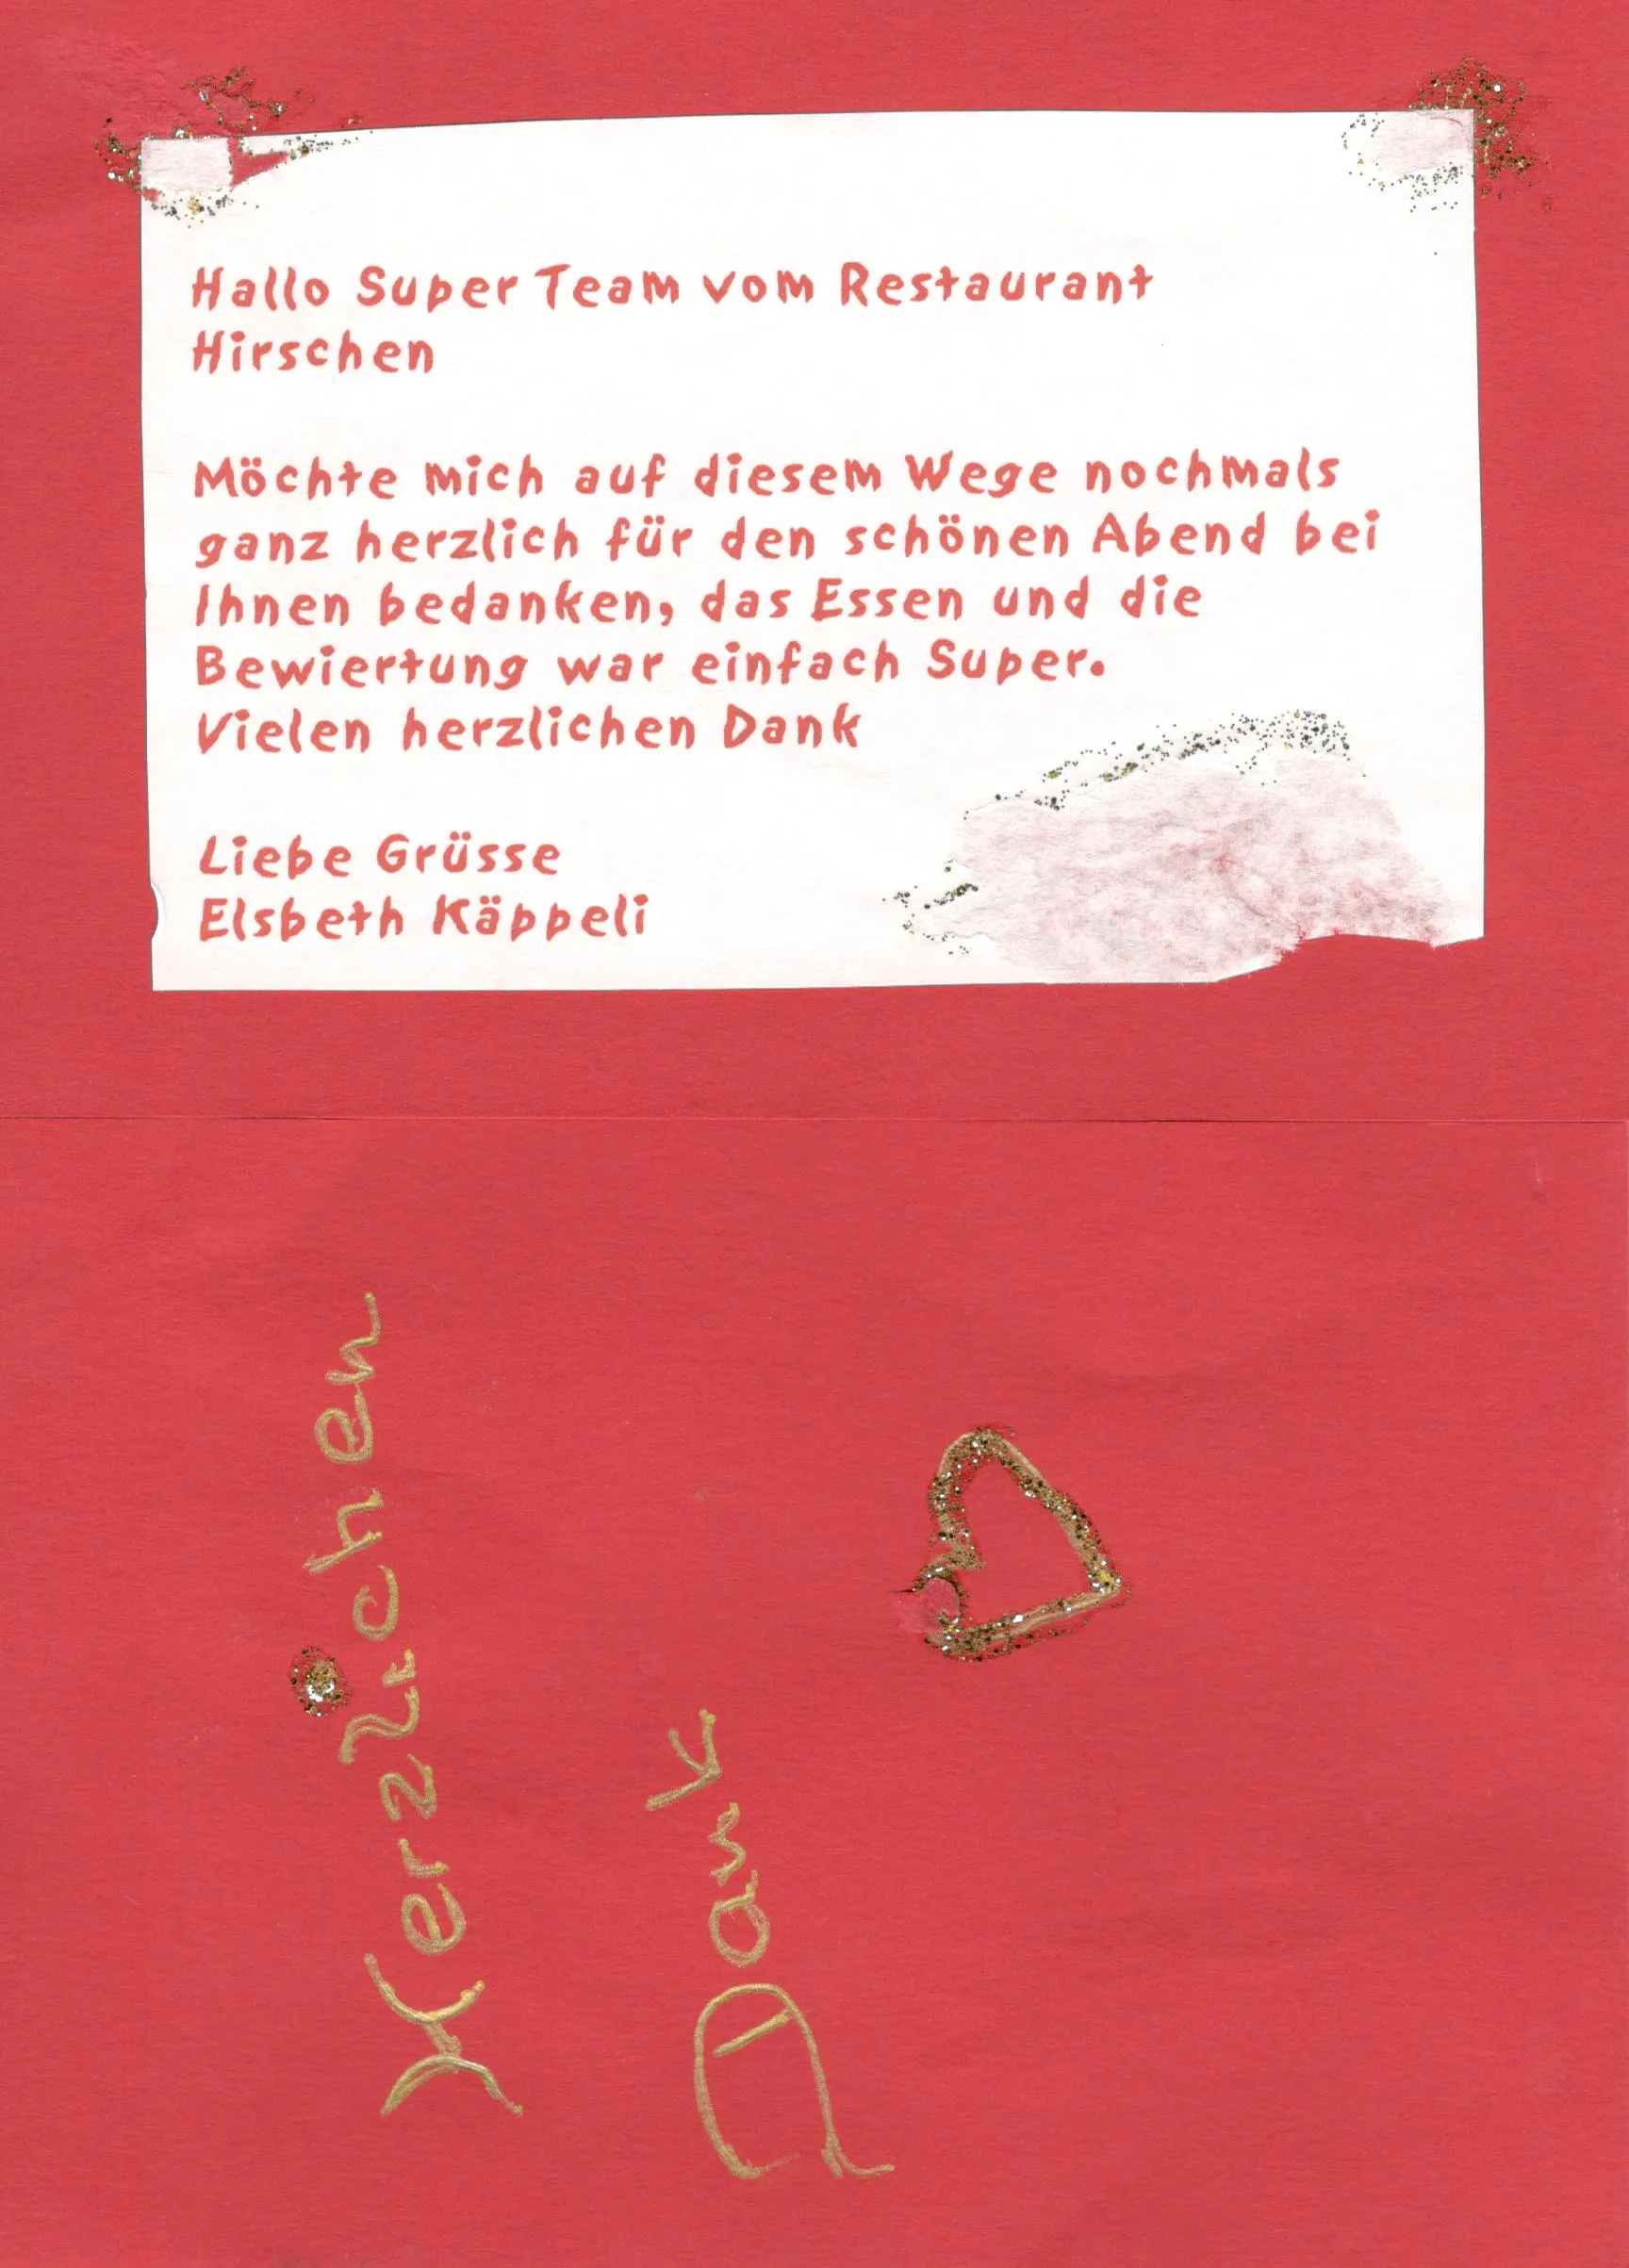 Hallo Super Team vom Restaurant
Hirschen
Möchte mich auf diesem Wege nochmals
ganz herzlich für den schönen Abend bei
Ihnen bedanken, das Essen und die
Bewiertung war einfach Super.
Vielen herzlichen Dank
Liebe Grüsse
Elsbeth Käppeli
Herzlichen
Dank